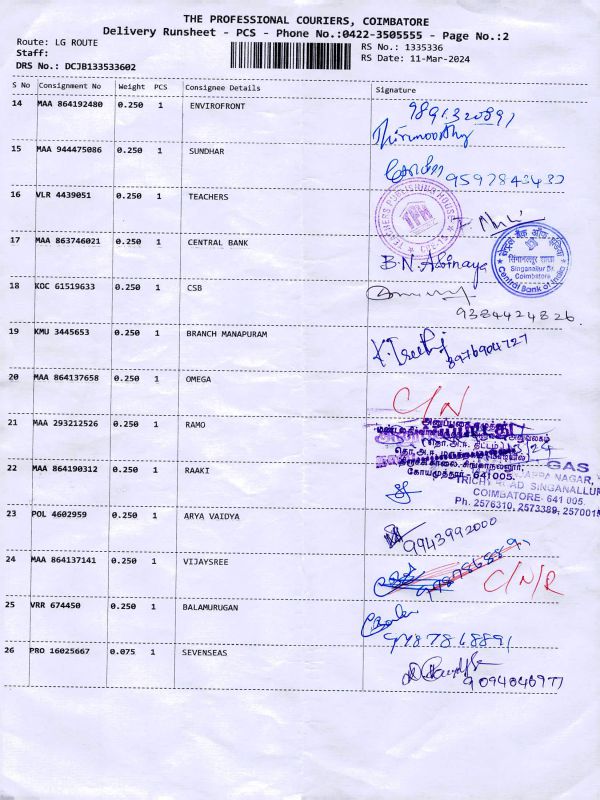 THE PROFESSIONAL COURIERS, COIMBATORE
Delivery Runsheet - PCS - Phone No.:0422-3505555 - Page No.:2
Route: LG ROUTE
RS No.: 1335336
Staff:
RS Date: 11-Mar-2024
DRS No.: DCJB133533602
S No Consignment No Weight PCS Consignee Details Signature
14 MAA 864192480 0.250 1 ENVIROFRONT
Thirumoorthy
15 MAA 944475086 0.250 1 SUNDHAR
9597843433
16 VLR 4439051 0.250 1 TEACHERS
TEACHERS PUBLISHING HOUSE
TPH
17 MAA 863746021 0.250 1 CENTRAL BANK B.N. Abinaya
सेन्ट्रल बैंक ऑफ इंडिया
सिंगानल्लूर शाखा
Singanallur Br.
Coimbatore
Central Bank of India
18 KOC 61519633 0.250 1 CSB
9384424826
19 KMU 3445653 0.250 1 BRANCH MANAPURAM
8976904727
20 MAA 864137658 0.250 1 OMEGA C/N
21 MAA 293212526 0.250 1 RAMO
கோயமுத்தூர் - 641 005.
22 MAA 864190312 0.250 1 RAAKI
GAS
TRICHY ROAD SINGANALLUR
COIMBATORE- 641 005.
Ph. 2576310, 2573389, 2570015
23 POL 4602959 0.250 1 ARYA VAIDYA
9943992000
24 MAA 864137141 0.250 1 VIJAYSREE
9787868891 C/N/R
25 VRR 674450 0.250 1 BALAMURUGAN
9787868891
26 PRO 16025667 0.075 1 SEVENSEAS
9094046977